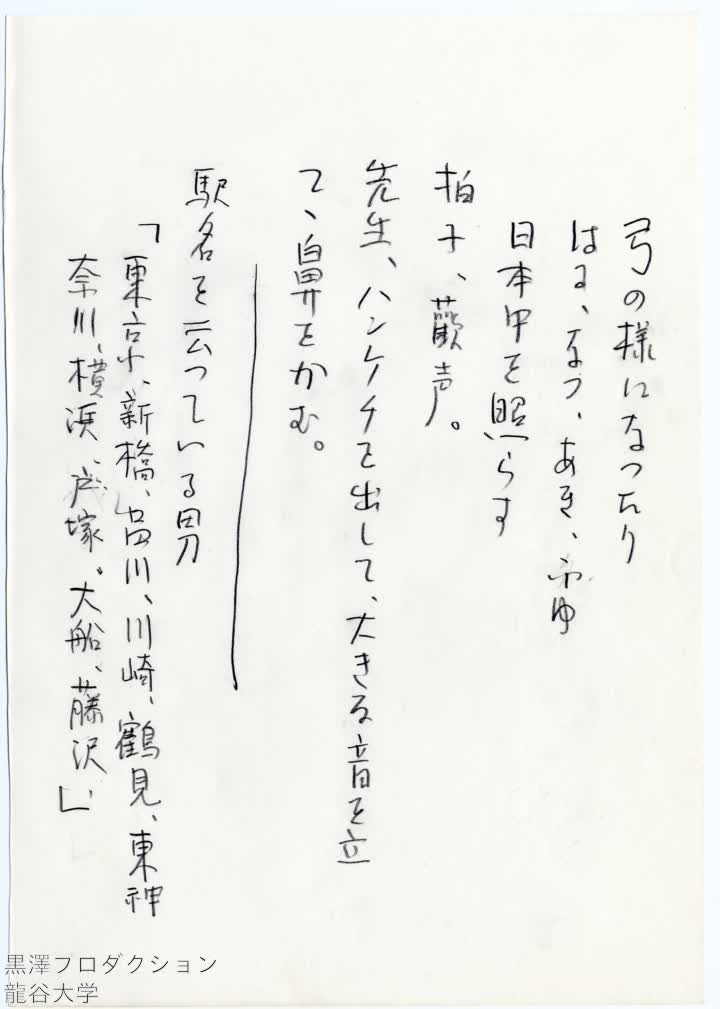 弓の様になったり
はる、なつ、あき、ふゆ
日本中を照らす
拍子、歓声。
先生、ハンケチを出して、大きな音を立
て、鼻をかむ。
駅名を云っている男
「東京、新橋、品川、川崎、鶴見、東神
奈川、横浜、戸塚。大船、藤沢」
黒澤プロダクション
龍谷大学